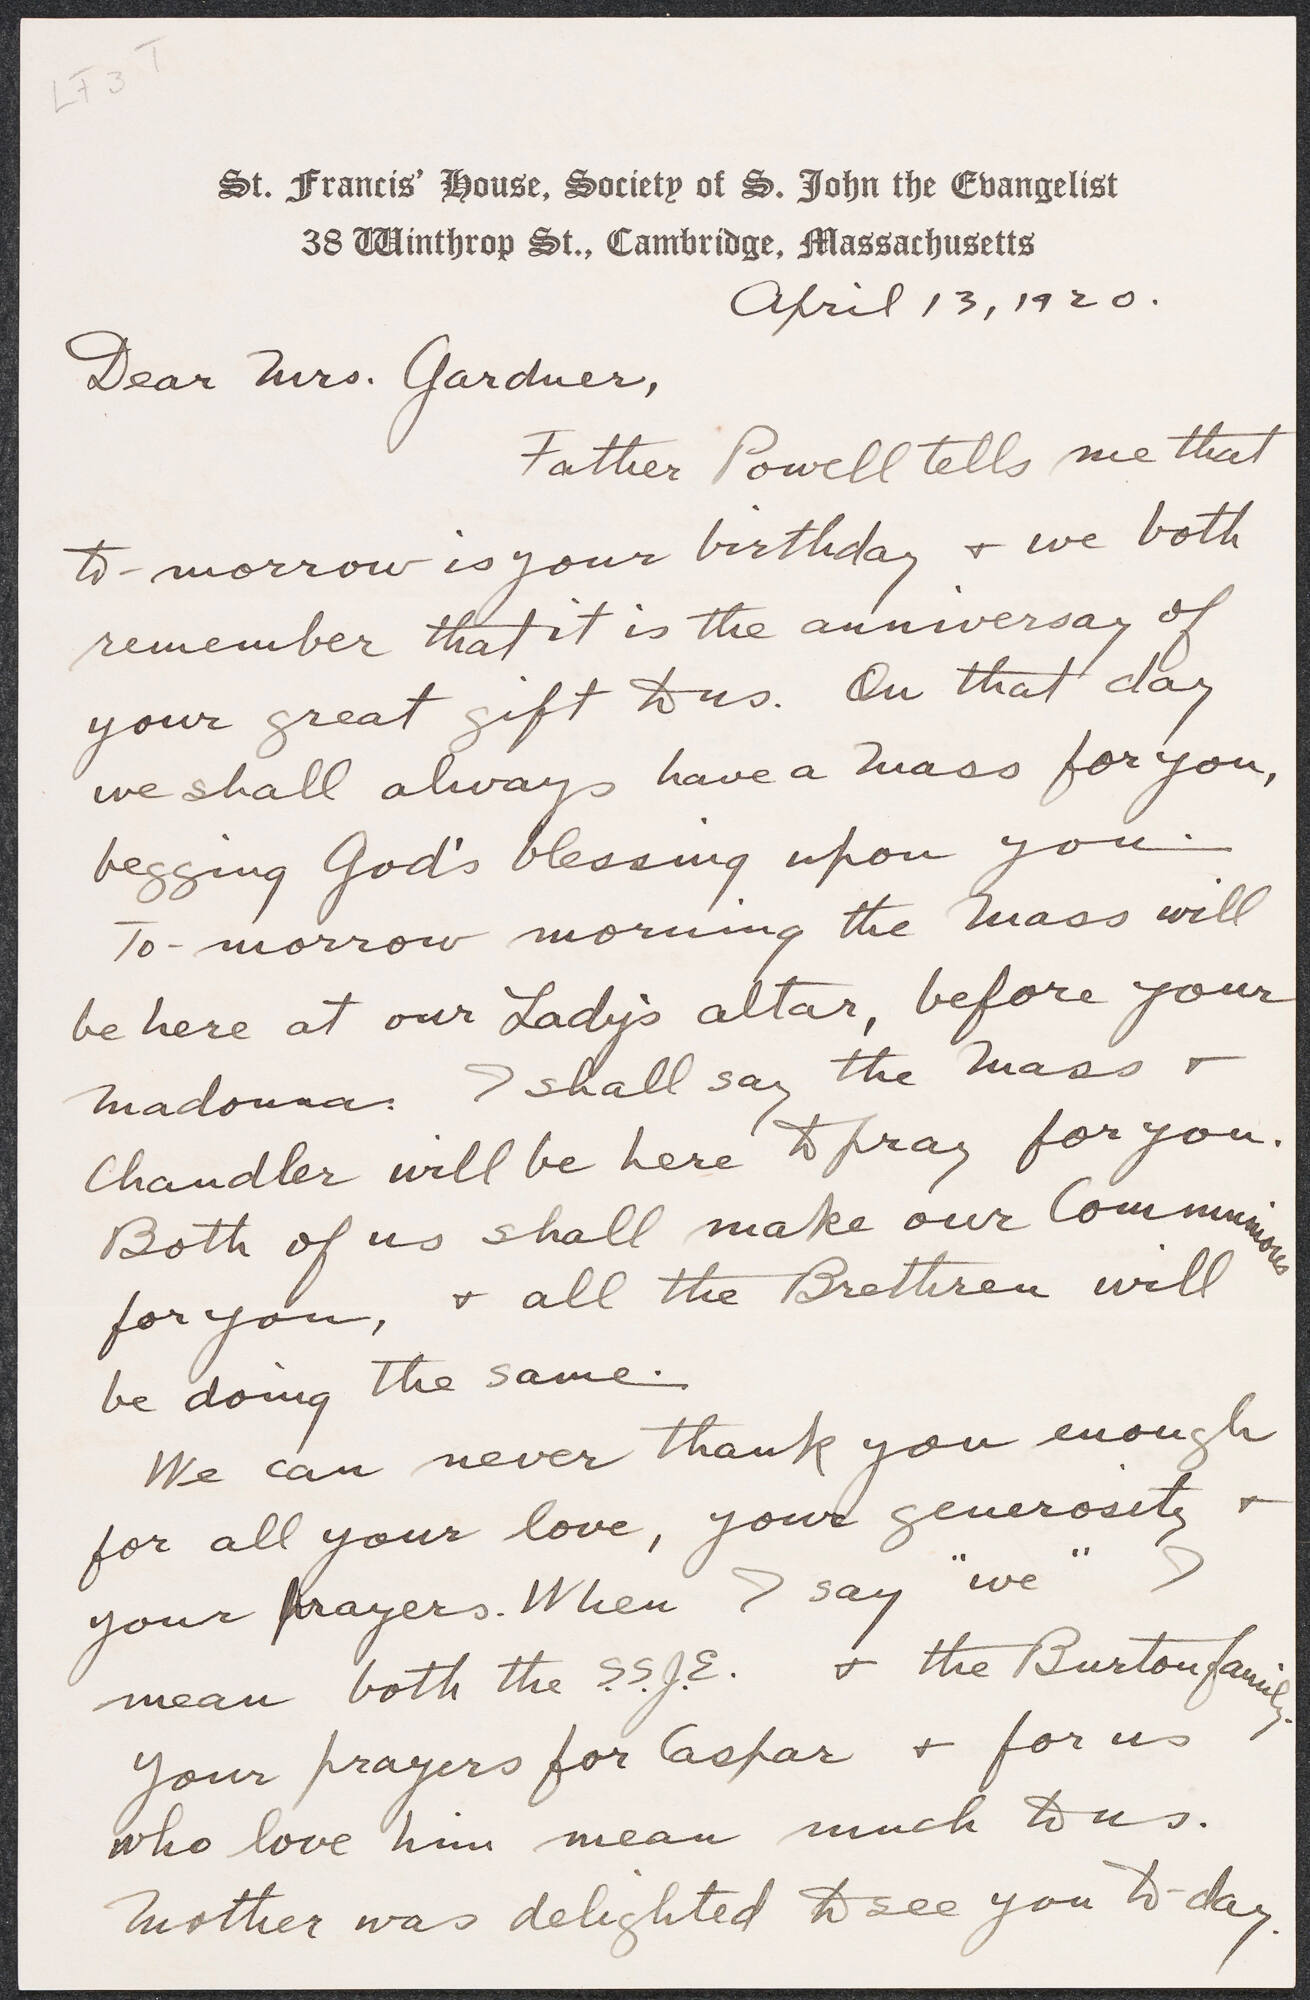 LF3 T
St. Francis' House, Society of S. John the Evangelist
38 Winthrop St., Cambridge, Massachusetts
April 13, 1920.
Dear Mrs. Gardner,
Father Powell tells me that
to-morrow is your birthday & we both
remember that it is the anniversay of
your great gift to us. On that day
we shall always have a Mass for you,
begging God's blessing upon you.
To-morrow morning the Mass will
be here at our Lady's altar, before your
Madonna. I shall say the Mass &
Chandler will be here to pray for you.
Both of us shall make our Communions
for you, & all the Brethren will
be doing the same.
We can never thank you enough
for all your love, your generosity &
your prayers. When I say "we" I
mean both the S.S.J.E. & the Burton family.
Your prayers for Caspar & for us
who love him mean much to us.
Mother was delighted to see you to-day.